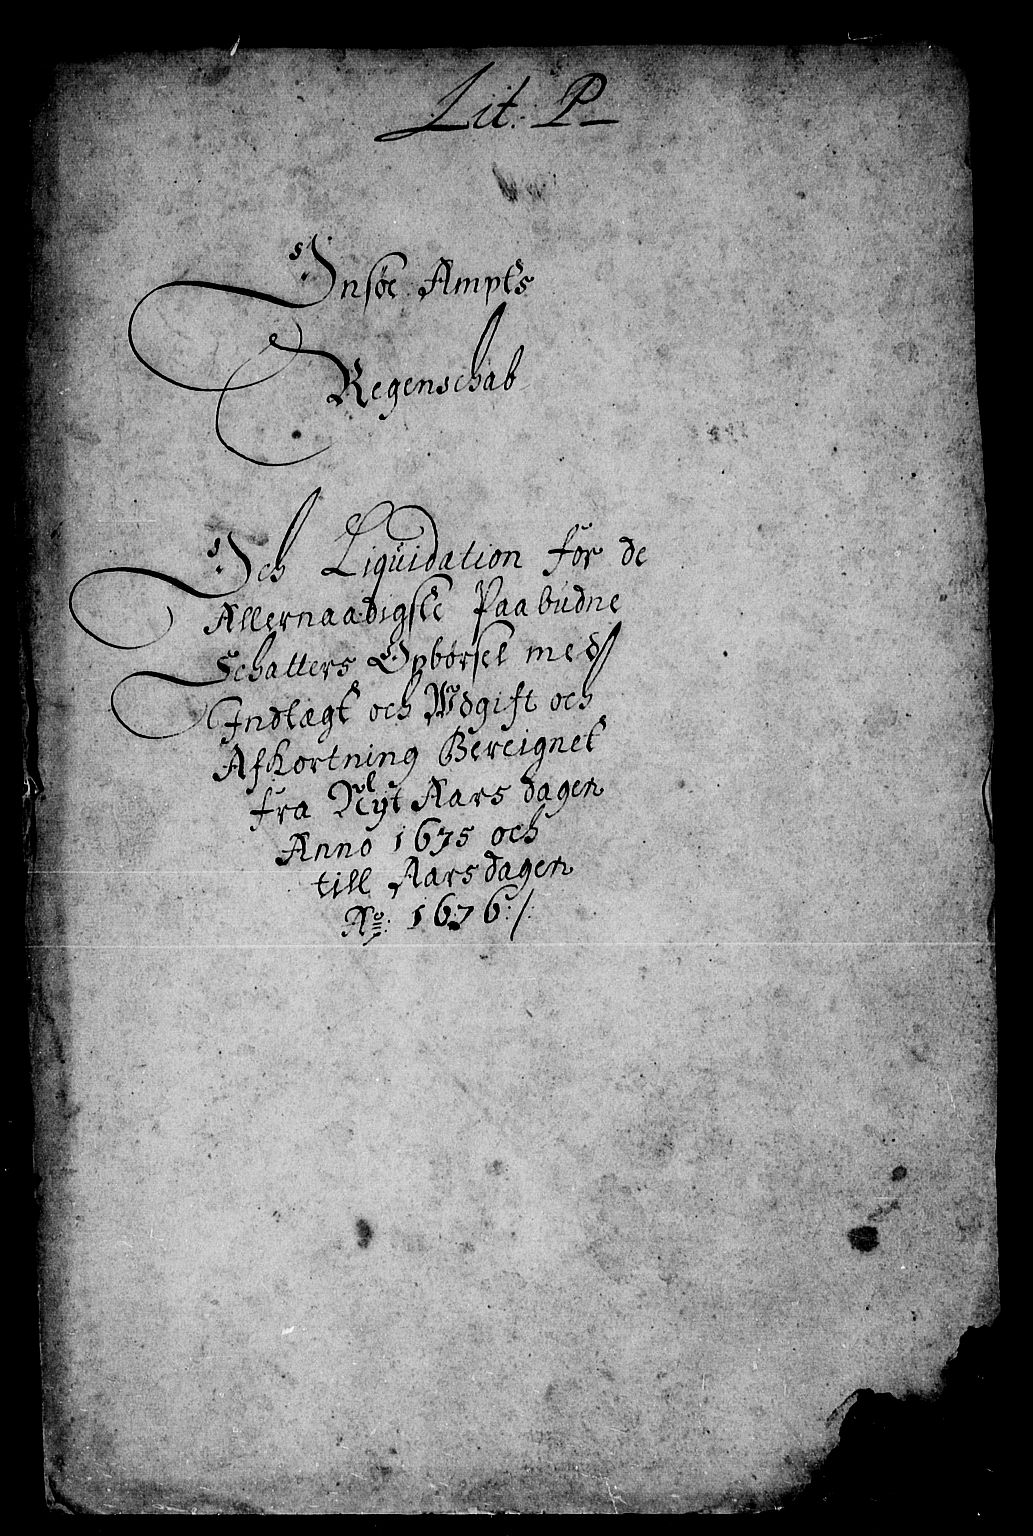 Lit: P
Jnsøe Ampts
Regenschab
Och Liqüidation for de
Allernaadigste Paabüdne
Schatters Opbørsel med
Indtægt och Wdgift och
Afkortning Bereignet
fra Nyt Aars dagen
Anno 1675 och
till Aarsdagen
Ao: 1676:/: